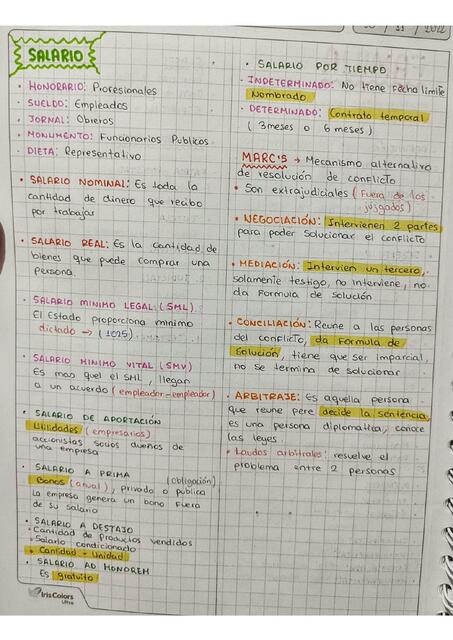 SALARIO
• HONORARIO: Profesionales
• SUELDO: Empleados
• JORNAL: Obreros
• MONUMENTO: Funcionarios Publicos
• DIETA: Representativo
• SALARIO NOMINAL: Es toda la
cantidad de dinero que recibo
por trabajar
• SALARIO REAL: Es la cantidad de
bienes que puede comprar una
persona.
• SALARIO MINIMO LEGAL (SML)
El Estado proporciona minimo
dictado → (1025)
SALARIO MINIMO VITAL (SMV)
Es mas que el SML, llegan
a un acuerdo (empleador-empleador)
• SALARIO DE APORTACIÓN
Utilidades (empresarios)
accionistas socios dueños de
una empresa
• SALARIO A PRIMA (obligación)
Bonos (anual), privado o publica
La empresa genera un bono fuera
de su salario
• SALARIO A DESTAJO
• Cantidad de productos vendidos
• Salario condicionado
• Cantidad - unidad
• SALARIO AD HONOREM
Es gratuito
IrisColors
Ultra
/ 11 / 2022
• SALARIO POR TIEMPO
• INDETERMINADO: No tiene fecha limite
Nombrado
• DETERMINADO: Contrato temporal
(3 meses o 6 meses)
MARC'S → Mecanismo alternativo
de resolución de conflicto
• Son extrajudiciales (Fuera de los
juzgados)
• NEGOCIACIÓN: Intervienen 2 partes
para poder solucionar el conflicto
• MEDIACIÓN: Intervien un tercero,
solamente testigo, no interviene, no
da formula de solución
• CONCILIACIÓN: Reune a las personas
del conflicto, da formula de
solución, tiene que ser imparcial,
no se termina de solucionar
• ARBITRAJE: Es aquella persona
que reune pere decide la sentencia,
es una persona diplomatica, conoce
las leyes.
• Laudos arbitrales: resuelve el
problema entre 2 personas